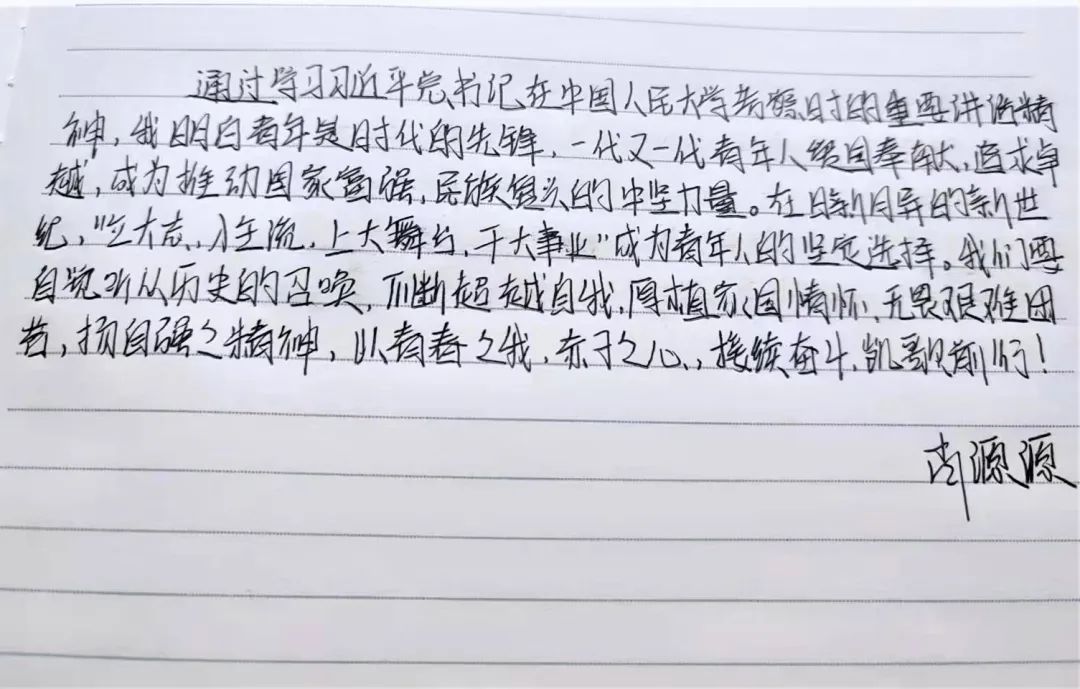 通过学习习近平总书记在中国人民大学考察时的重要讲话精
神，我明白青年是时代的先锋，一代又一代青年人紧固奉献，追求卓
越，成为推动国家富强，民族复兴的中坚力量。在日新月异的新世
纪，“立大志，入主流，上大舞台，干大事业”成为青年人的坚定选择。我们要
自觉听从历史的召唤，不断超越自我，厚植家国情怀，无畏艰难困
苦，扬自强之精神，以青春之我，赤子之心，接续奋斗，凯歌前行！
源源